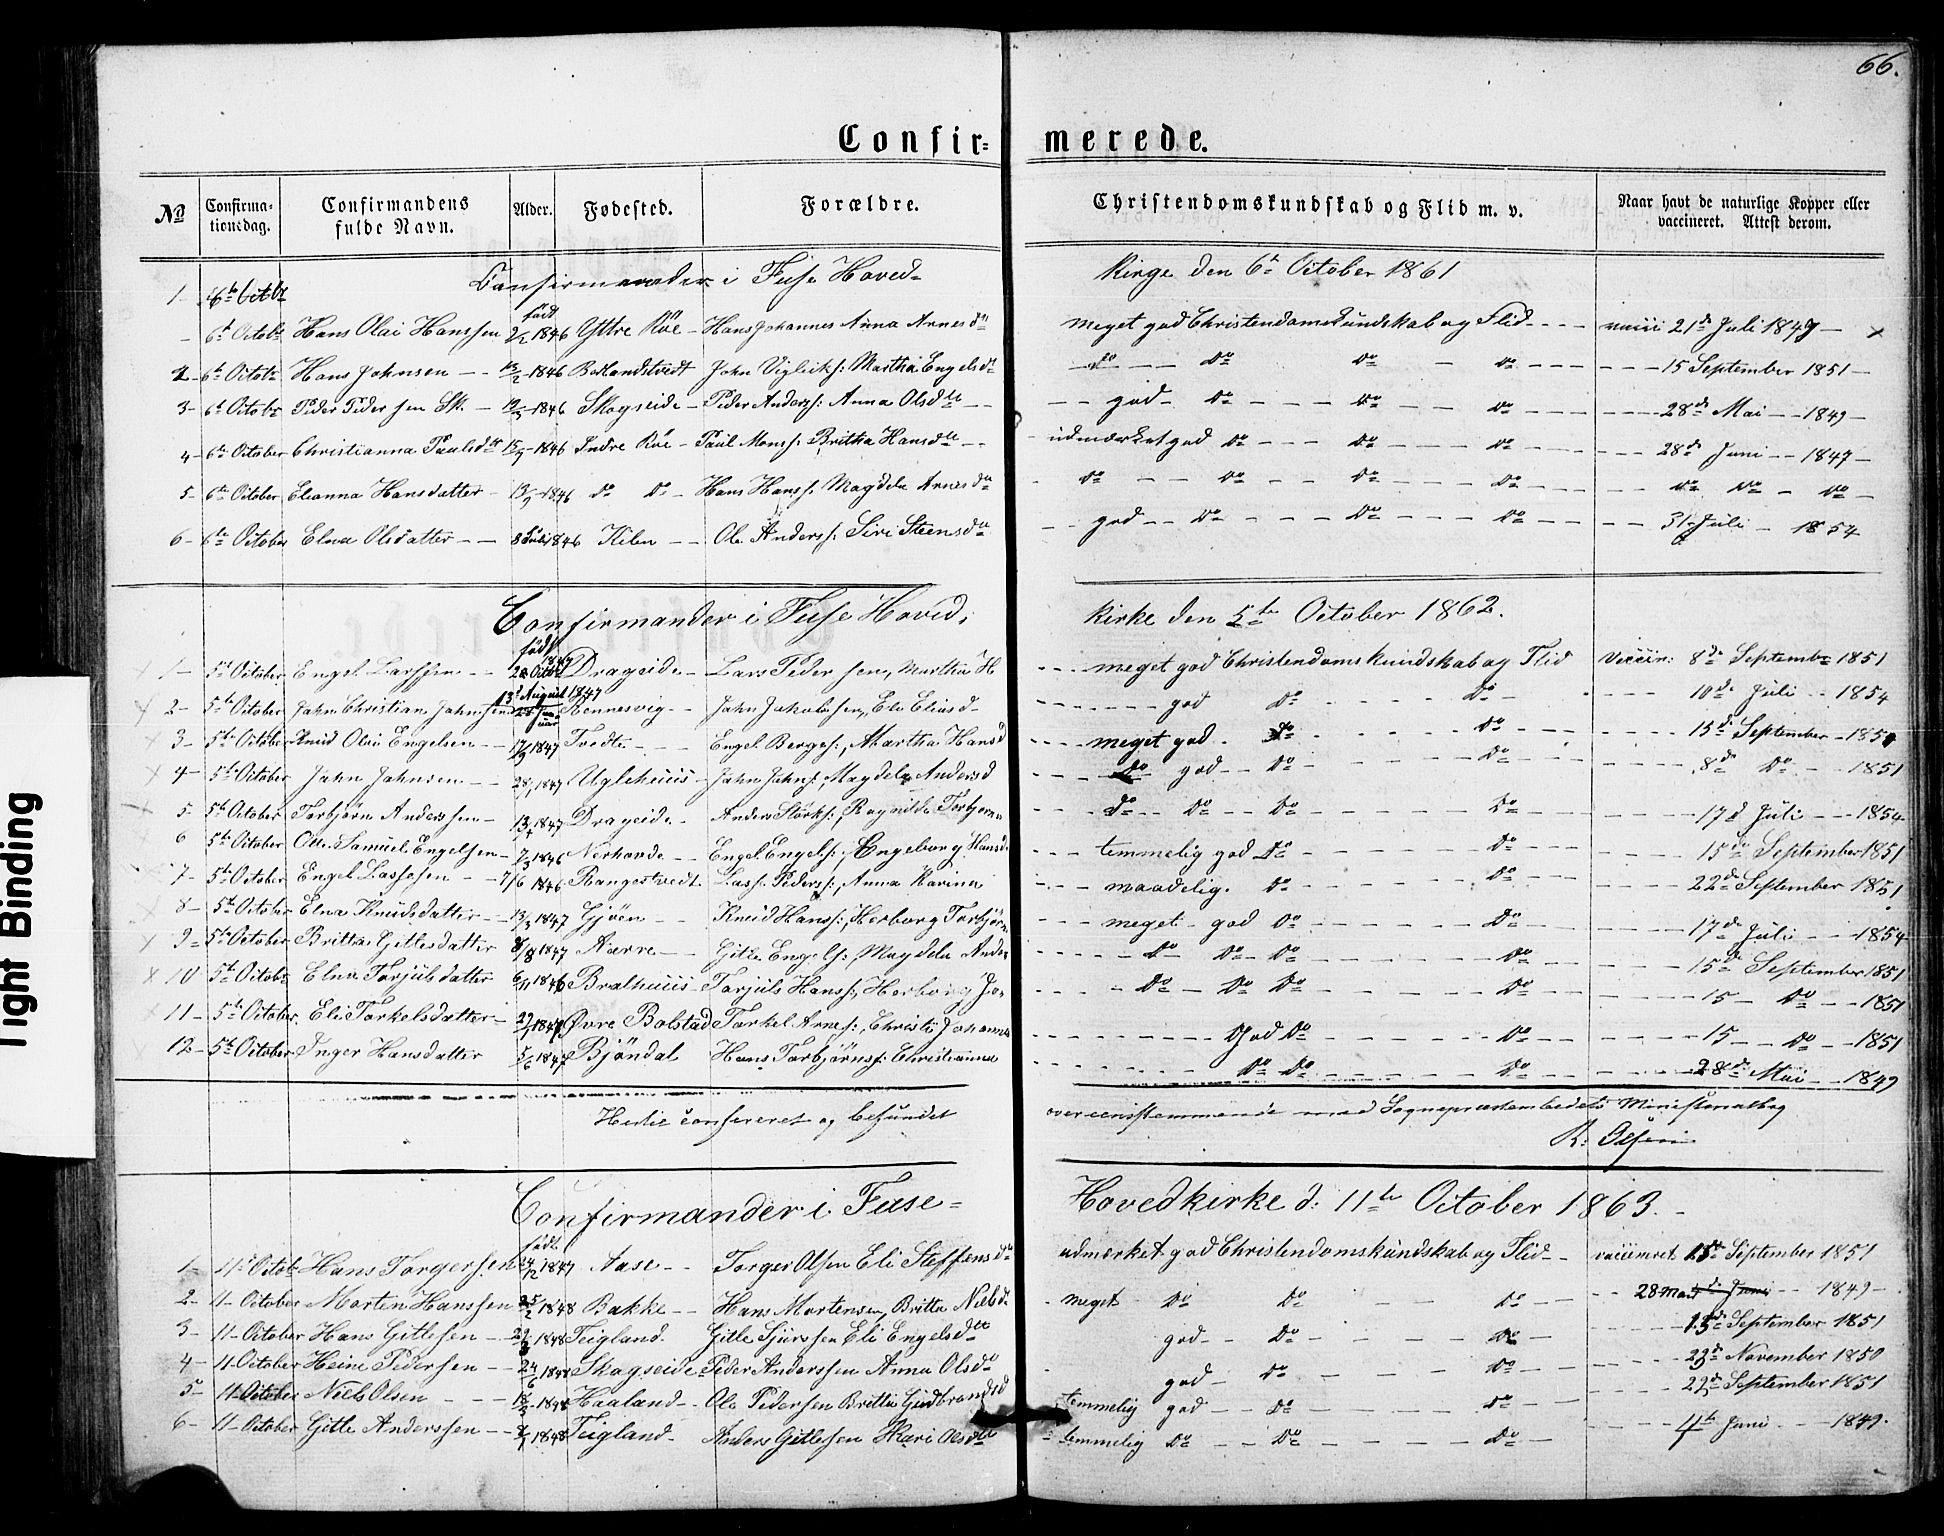 66.
Confir= merede.
No Confirma-tionsdag. Confirmandens fulde Navn. Alder. Fødested. Forældre. Christendomskundskab og Flid m. v. Naar havt de naturlige Kopper eller vaccineret. Attest derom.
Confirmerede i Fuse Hoved= Kirge den 6te October 1861
1 - 6te Octbr
født
- 6t Octobr Hans Olai Hanssen 1846 Yttre Röe - Hans Johannes Anna Arnesdtr meget god Christendomskundskab og Flid - - - - vacii 21de Juli 1849 -
2 - 6te Octobr Hans Johnsen - - 13/2 1846 Bolandstvedt John Vigleiks: Martha Engelsdtr do - - Do Do - Do - - - - - - 15 September 1851 -
3 - 6te Octobr Peder Pedersen Sk. - 1846 Skogseide - Peder Anders: Anna Olsdtr - - - - god - Do - - - Do - - Do - - - - - 28de Mai - - 1849 -
4 - 6te October Christianna Paulsdtr 1846 Indre Röe - Paul Mons: Britha Hansdtr - - udmærket god Do - - - Do - - Do - - - - 28de Juni - - 1847 -
5 - 6te October Elianna Hansdatter - 13/9 1846 do do - Hans Hans: Magdela Arnesdtr - Do - - Do - - Do - - Do - - - - Do Do - Do -
6 - 6te October Elna Olsdatter - - 8 Juli 1846 Kilen - - Ole Anders: Siri Steensdtr - - god - - Do - - - Do - - Do - - - - 31 Juli - 1854
Confirmander i Fuse Hoved= Kirke den 5te October 1862.
født
1 - 5te October Engel Larssen - - 20 Octbr 1847 Drageide - Lars Pedersen, Martha H - - - meget god Christendomskundskab og Flid Vacein: 8de Septembr 1851
13 August 1847
2 - 5te October John Christian Johnsen Rennesvig - - John Jakobsen, Eli Eliasd - - - - - god Do - - Do - - 10de Juli - - 1854
3 - 5te October Knud Olai Engelsen - - 1847 Tvedte - - - Engel Berges: Martha Hansd - - - meget god. Do - - - Do - - - - - 15de September - 1851
4 - 5te October John Johnsen - - 1847 Uglehuus - John Johns: Magdela Andersd - - - Do god - - Do - - - Do - - - - - 8de Do - - - 1851
5 - 5te October Torbjørn Anderssen - 13/4 1847 Drageide - Anders Störks: Ragnilda Torbjørn - - - do - Do - Do - - - - Do - - - - 17d Juli - - - 1854
6 5te October Otte Samuel Engelsen - 7/3 1846 Nerhovde - - Engel Engels: Engeborg Hansd - - - temmelig god Do - - - - Do - - - - - 15de September 1851
7 - 5te October Engel Lassesen - - 7/6 1846 Rangestvedt Lass: Peders: Anna Karina - - - maadelig. Do - - - - Do - - - - - 22de September 1851
8 - 5te October Elna Knudsdatter - - 13/3 1847 Gjöen - - Knud Hans: Herborg Torbjørn - - - meget - god Do - - - - Do - - - - - 17de Juli - - - 1854
9 - 5te October Britta Gitlesdatter 8/8 1847 Nærre - - Gitle Engels: Magdela Ander - - - - - Do - Do - Do - - - - Do - - - - - 15de September 1851
10 5te Octobr Elna Torjulsdatter 6/11 1846 Bralhuus - Torjuls Hans: Herborg Jo, - - - - Do - Do Do - - - - Do - - - - - 15 - Do - - 1851
11 - 5te October. Eli Torkelsdatter - 1847 Øvre Bolstad Torkel Arnes: Christi Johannes - - - - - - - God Do - - - - Do - - - - - 15 - - Do - - 1851
12 - 5te October Inger Hansdatter 5/6 1847 Bjöndal Hans Torbjørns: Christianna - - - - - - - Do Do - - - - Do - - - - - 28de Mai - - 1849
Hertil confereret og befundet overeenstemmende med Sognepræstembedets Ministerialbog
R: Olsen
Confirmander i Fuse= Hovedkirke d: 11te October 1863. -
født
1 - 11te Octobr Hans Torgersen 1847 Aase - - Torger Olsen Eli Steffensdtr udmærket god Christendomskundskab og Flid - - vaciineret 15de September 1851
2 - 11 - October Morten Hanssen 25/2 1848 Bakke - - Hans Mortensen, Britta Nielsdtr - meget Do Do - - Do - - - - 28 Mai Juni - - 1849 -
3 - 11 - October Hans Gitlesen - 1848 Teigland. Gitle Sjurssen Eli Engelsdtr god - - Do - - - Do - - - - - 15de September 1851
4 - 11 - October Heine Pedersen - - 24/6 1848 Skogseide Peder Anderssen Anna Olsdtr god - Do - - - Do - - - - - 23de November 1850
5 - 11 October Niels Olsen - - - 1848 Haaland - - Ole Pedersen Britte Gudbrandsd temmelig god - - Do - - - Do - - - - 22de September 1851
6 - 11 - October Gitle Anderssen - - 1848 Teigland - Anders Gitlesen Kari Olsdtr temmelig Do - - Do - - - - Do - - - - 4te Juni - - - 1849.
Tight Binding